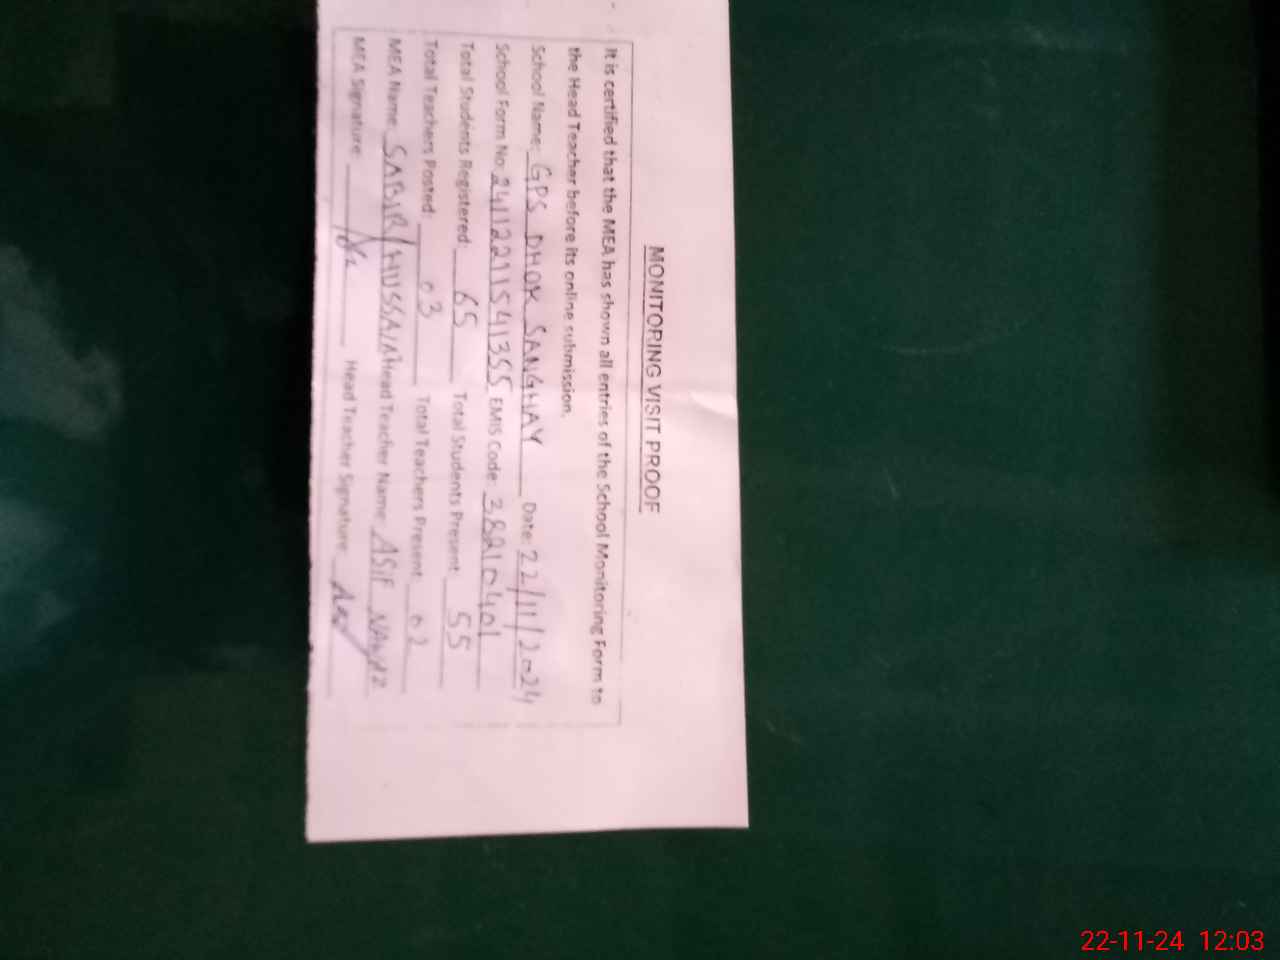 MONITORING VISIT PROOF
It is certified that the MEA has shown all entries of the School Monitoring Form to
the Head Teacher before its online submission.
School Name: GPS DHOK SANGHAY Date: 22/11/2024
School Form No: 24112211541355 EMIS Code: 38210401
Total Students Registered: 65 Total Students Present: 55
Total Teachers Posted: 03 Total Teachers Present: 02
MEA Name: SABIR HUSSAIN Head Teacher Name: ASIF NAWAZ
MEA Signature: Head Teacher Signature:
22-11-24 12:03